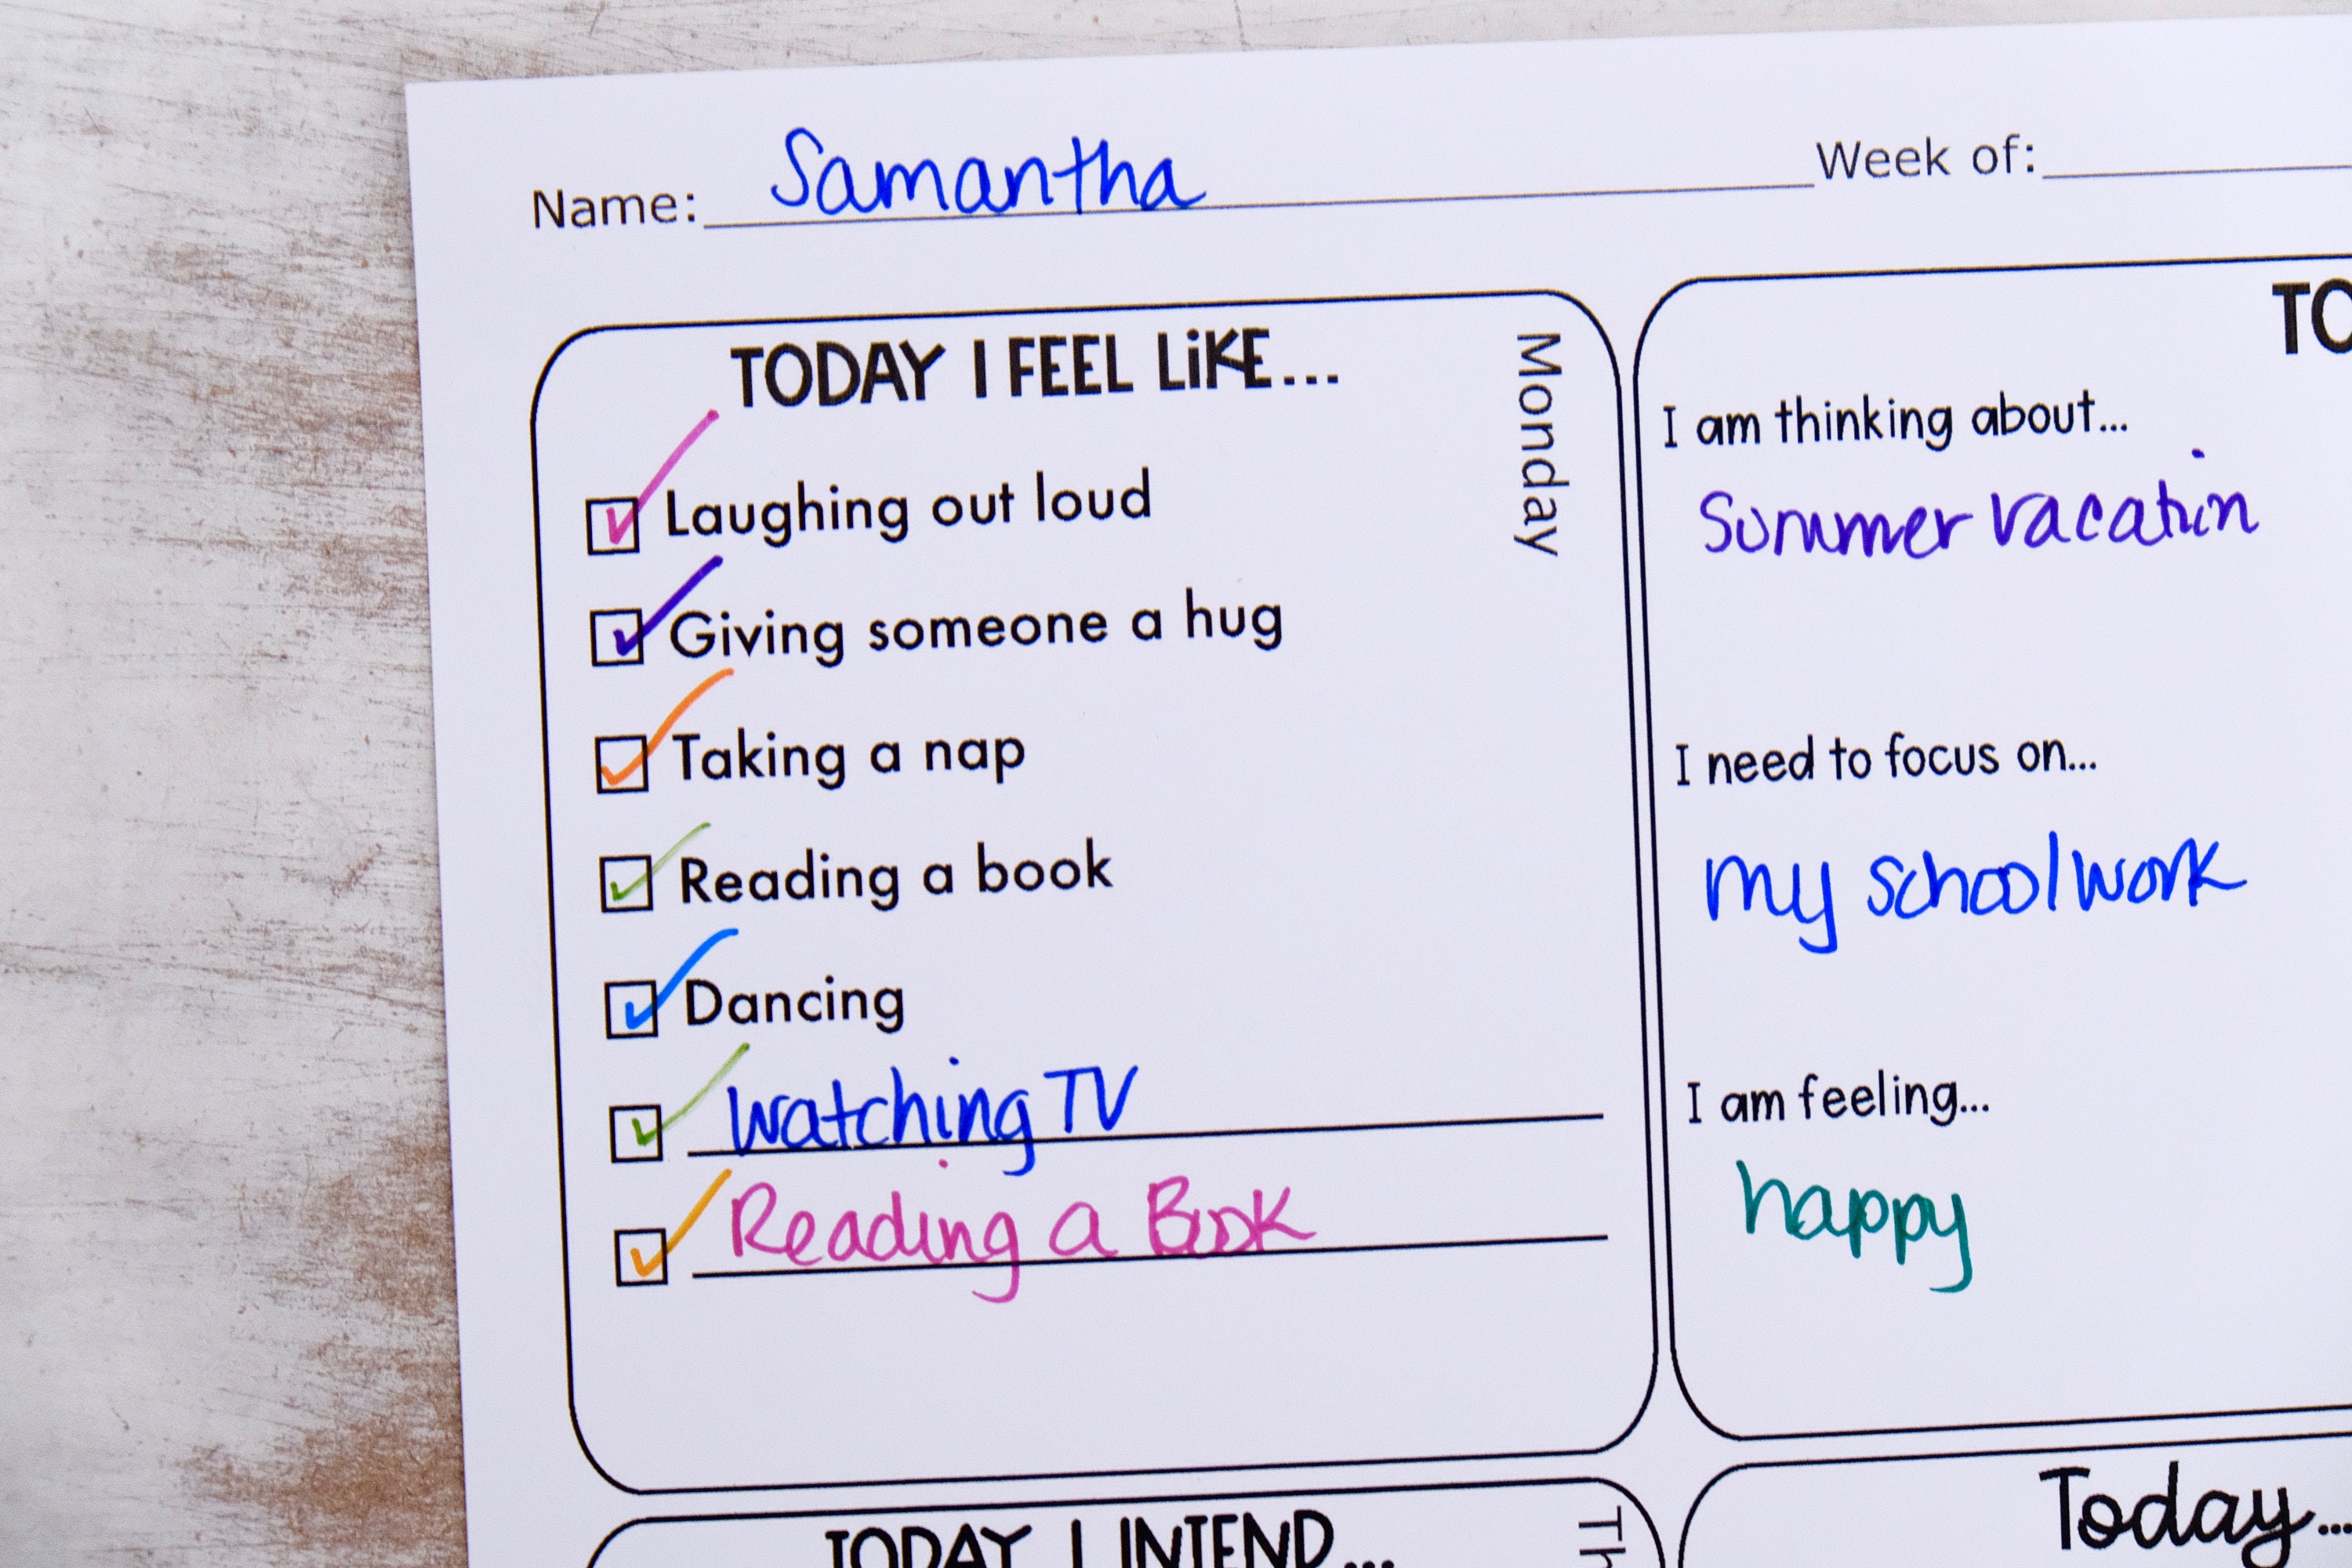 Name: Samantha Week of:
TODAY I FEEL LiKE...
Monday
Laughing out loud
Giving someone a hug
Taking a nap
Reading a book
Dancing
Watching TV
Reading a Book
I am thinking about...
Summer vacation
I need to focus on...
my schoolwork
I am feeling...
happy
TODAY I INTEND...
Today...